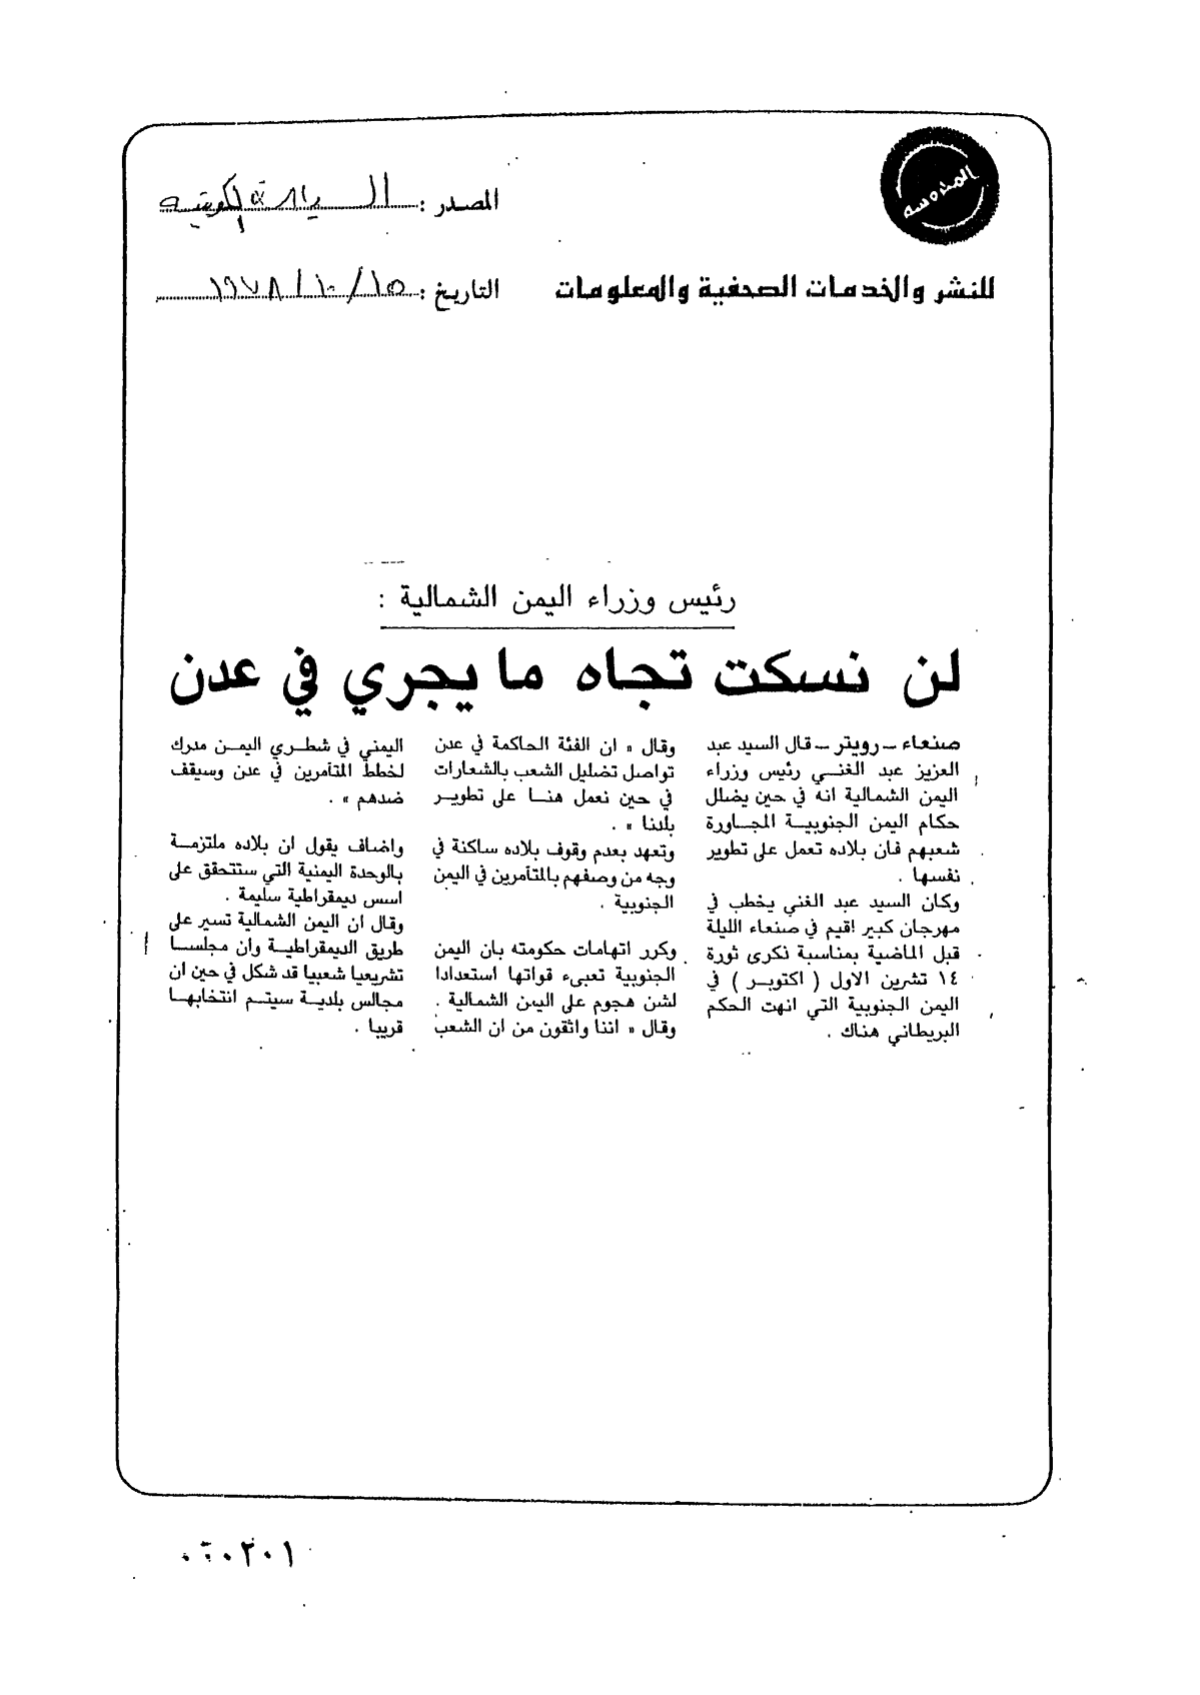 المدوسه
المصدر : السياسة الكويتيه
للنشر والخدمات الصحفية والمعلومات
التاريخ : ١٥/١٠/١٩٧٨
رئيس وزراء اليمن الشمالية :
لن نسكت تجاه ما يجري في عدن
صنعاء ــ رويتر ــ قال السيد عبد
العزيز عبد الغنــي رئيس وزراء
اليمن الشمالية انه في حين يضلل
حكام اليمن الجنوبيــة المجـاورة
شعبهم فان بلاده تعمل على تطوير
نفسها .
وكان السيد عبد الغني يخطب في
مهرجان كبير اقيم في صنعاء الليلة
قبل الماضية بمناسبة ذكرى ثورة
١٤ تشرين الاول ( اكتوبـر ) في
اليمن الجنوبية التي انهت الحكم
البريطاني هناك .
وقال « ان الفئة الحاكمة في عدن
تواصل تضليل الشعب بالشعارات
في حين نعمل هنـا على تطويـر
بلدنا » .
وتعهد بعدم وقوف بلاده ساكنة في
وجه من وصفهم بالمتآمرين في اليمن
الجنوبية .
وكرر اتهامات حكومته بان اليمن
الجنوبية تعبىء قواتها استعدادا
لشن هجوم على اليمن الشمالية .
وقال « اننا واثقون من ان الشعب
اليمني في شطـري اليمـن مدرك
لخطط المتآمرين في عدن وسيقف
ضدهم » .
واضاف يقول ان بلاده ملتزمـة
بالوحدة اليمنية التي ستتحقق على
اسس ديمقراطية سليمة .
وقال ان اليمن الشمالية تسير على
طريق الديمقراطيـة وان مجلسـا
تشريعيا شعبيا قد شكل في حين ان
مجالس بلديـة سيتـم انتخابهـا
قريبا .